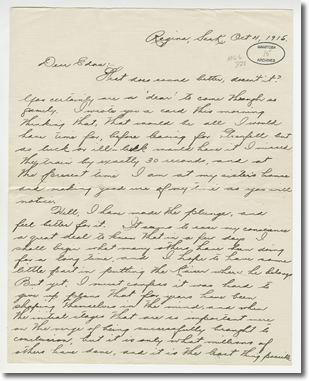 Regina, Sask, Oct 11, 1915,
MANITOBA
ARCHIVES
Dear Edna:
That does sound better, doesn't it?
You certainly are a "dear" to come through so
I wrote you a card this morning
thinking that, that would be all I would
have time for, before leaving for Grenfell but
as luck or ill luck would have it I missed
the train by exactly 30 seconds, and at
the present time I am at my sister's house
and making good use of my time as you will
notice.
Well, I have made the plunge, and
feel better for it. It says to ease my conscience
a great deal to know that in a few days I
shall begin what many others have been doing
for a long time, and I hope to have some
little part in putting the Kaiser where he belongs
But yet, I must confess it was hard to
you up. That for years have been
shaping themselves in the mind, and when
the initial stages that are so important were
on the verge of being successfully brought to
conclusion, but it is only what millions of
others have done, and it is the least thing